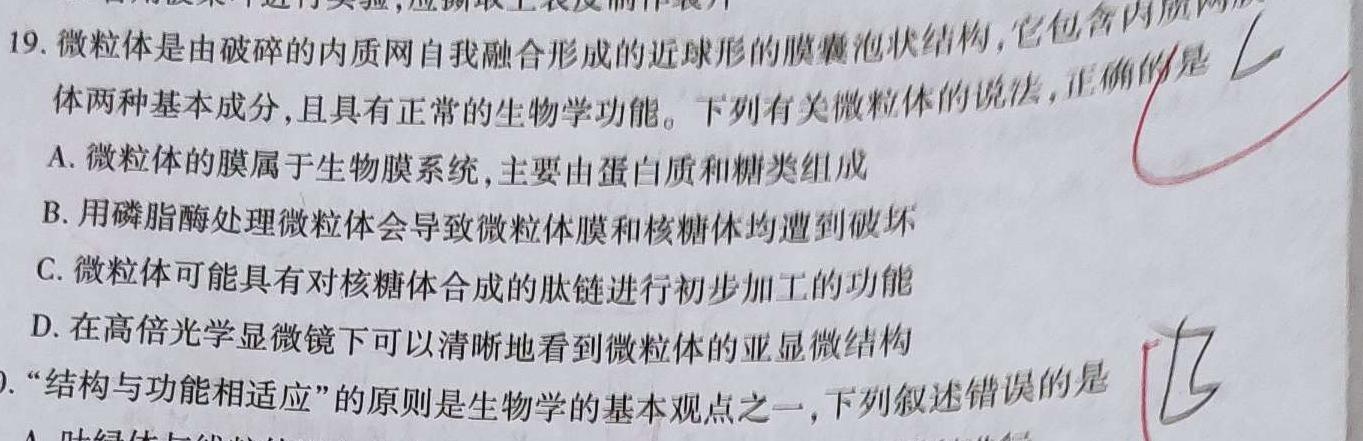 19. 微粒体是由破碎的内质网自我融合形成的近球形的膜囊泡状结构,它包含内质网
体两种基本成分,且具有正常的生物学功能。下列有关微粒体的说法,正确的是 C
A. 微粒体的膜属于生物膜系统,主要由蛋白质和糖类组成
B. 用磷脂酶处理微粒体会导致微粒体膜和核糖体均遭到破坏
C. 微粒体可能具有对核糖体合成的肽链进行初步加工的功能
D. 在高倍光学显微镜下可以清晰地看到微粒体的亚显微结构
0. “结构与功能相适应”的原则是生物学的基本观点之一,下列叙述错误的是 B